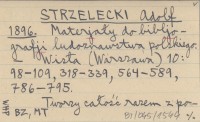 STRZELECKI Adolf
1896. Materjały do bibljo-
grafji ludoznawstwa polskiego.
Wisła (Warszawa) 10:
98-109, 318-339, 564-589,
786-795.
Tworzy całość razem z po-
BZ, MT
WHF